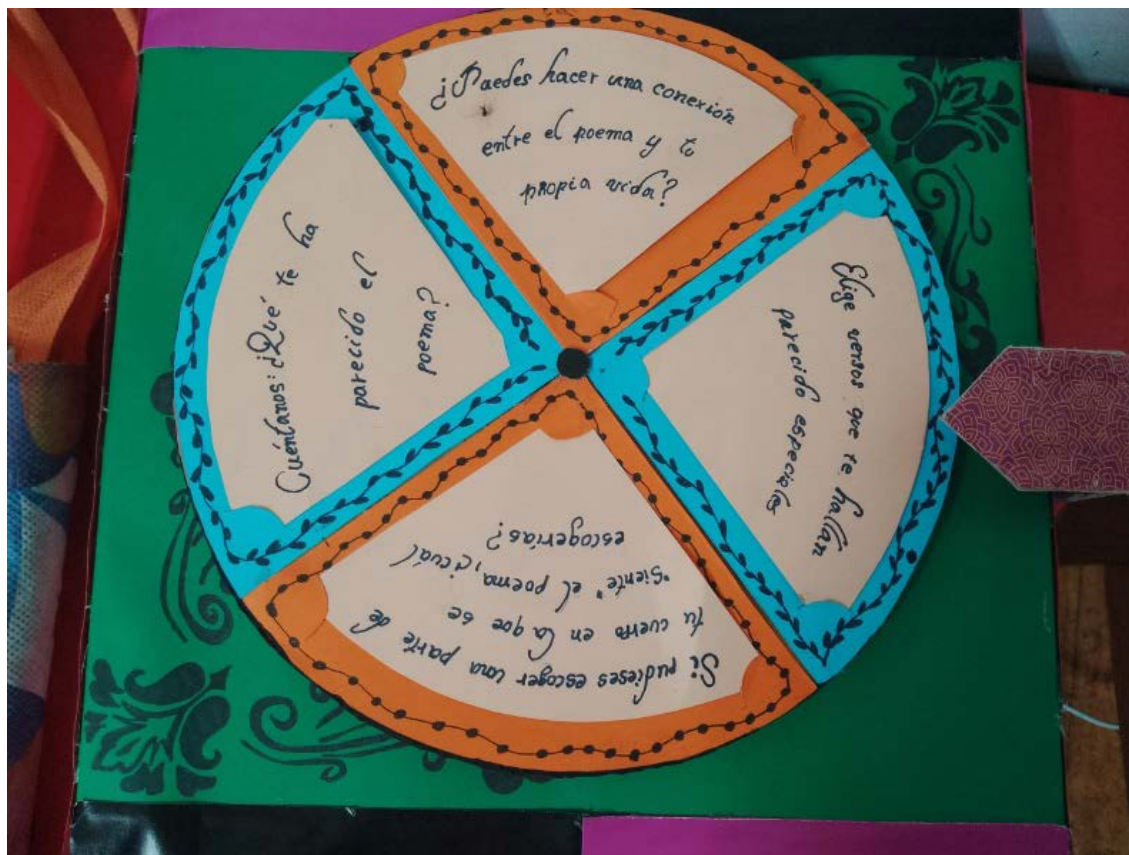 ¿Puedes hacer una conexión
entre el poema y tu
propia vida?
Elige versos que te hallan
parecido especiales
Si pudieses escoger una parte de
tu cuerpo en la que se
"Siente" el poema, ¿cuál
escogerías?
Cuéntanos: ¿Qué te ha
parecido el
poema?